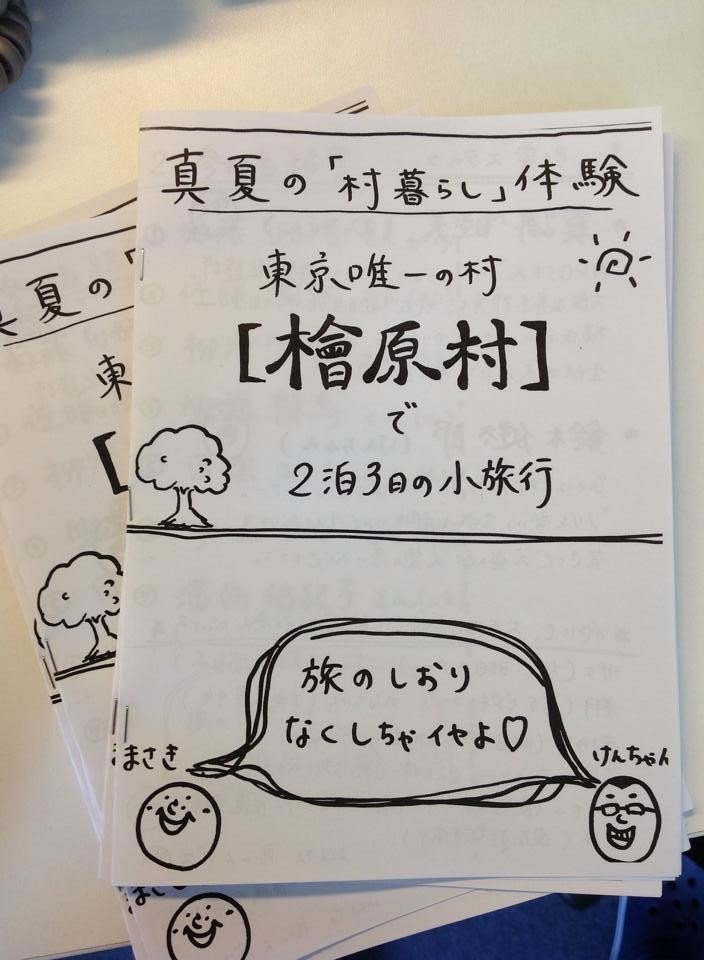 真夏の「村暮らし」体験
東京唯一の村
[檜原村]
で
2泊3日の小旅行
旅のしおり
なくしちゃイヤよ♡
まさき
けんちゃん
真夏の「
東
[